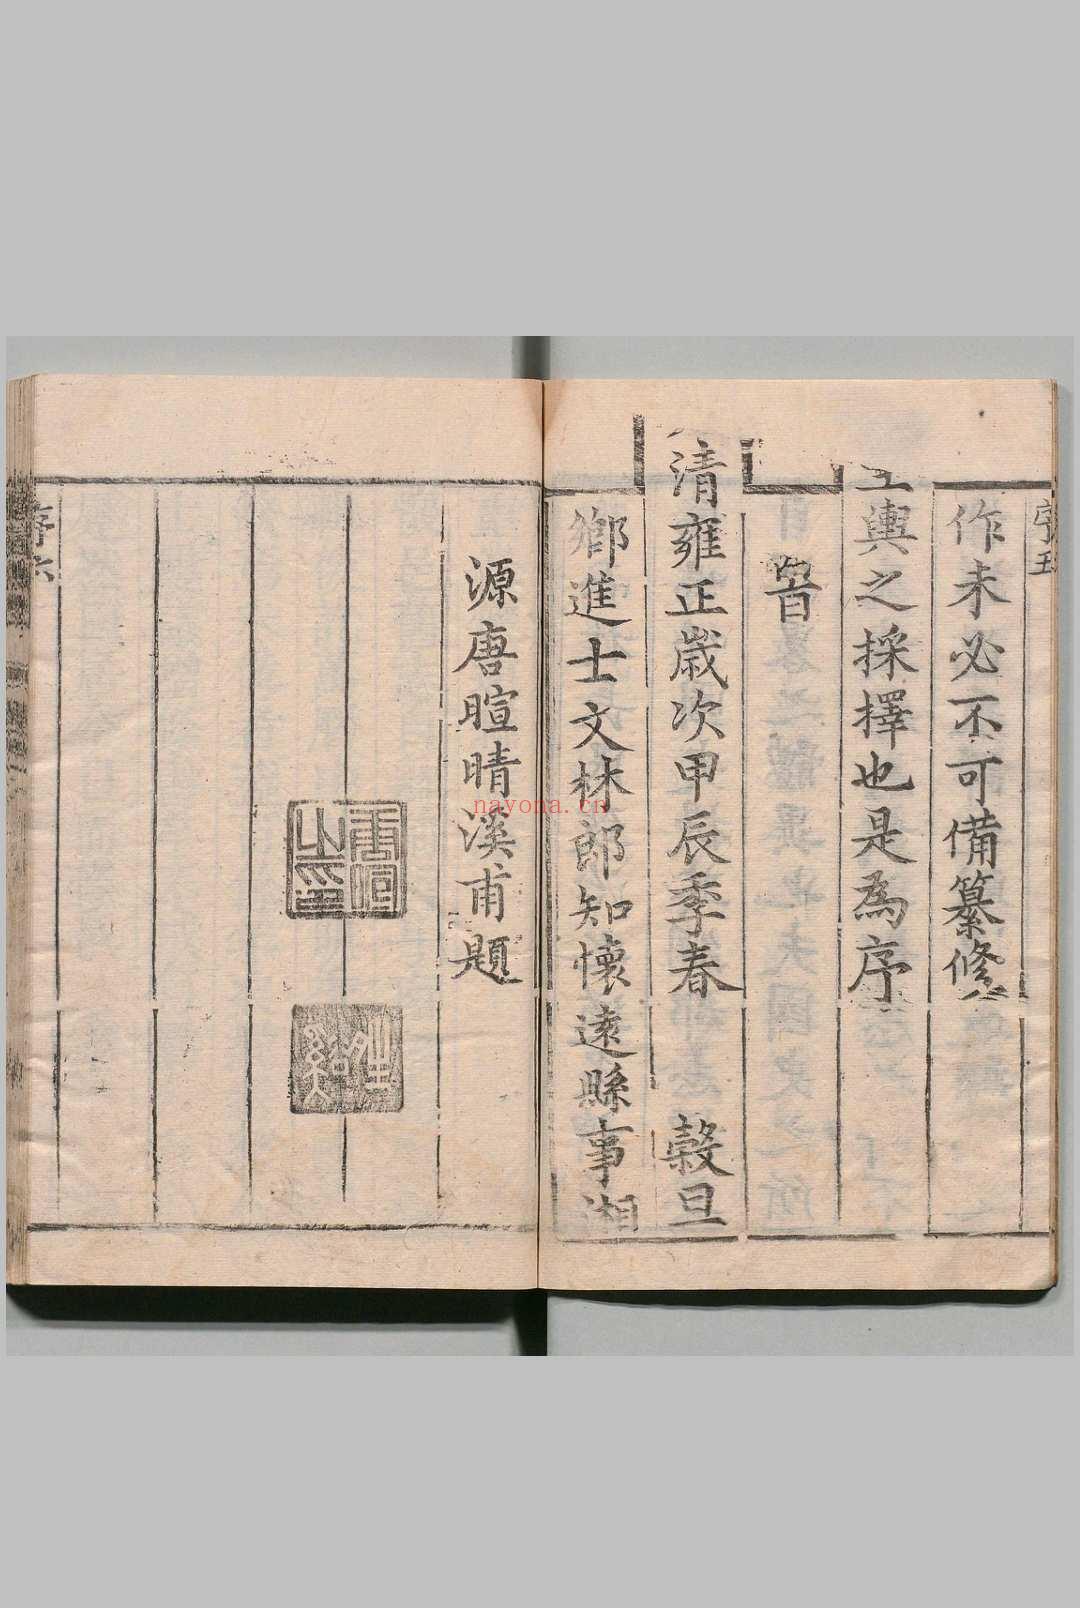 序五
作未必不可備纂修
輿之採擇也是為序
旹
清雍正歲次甲辰季春 穀旦
鄉進士文林郎知懷遠縣事湘
源唐暄晴溪甫題
唐暄之印
序六
nayona.cn